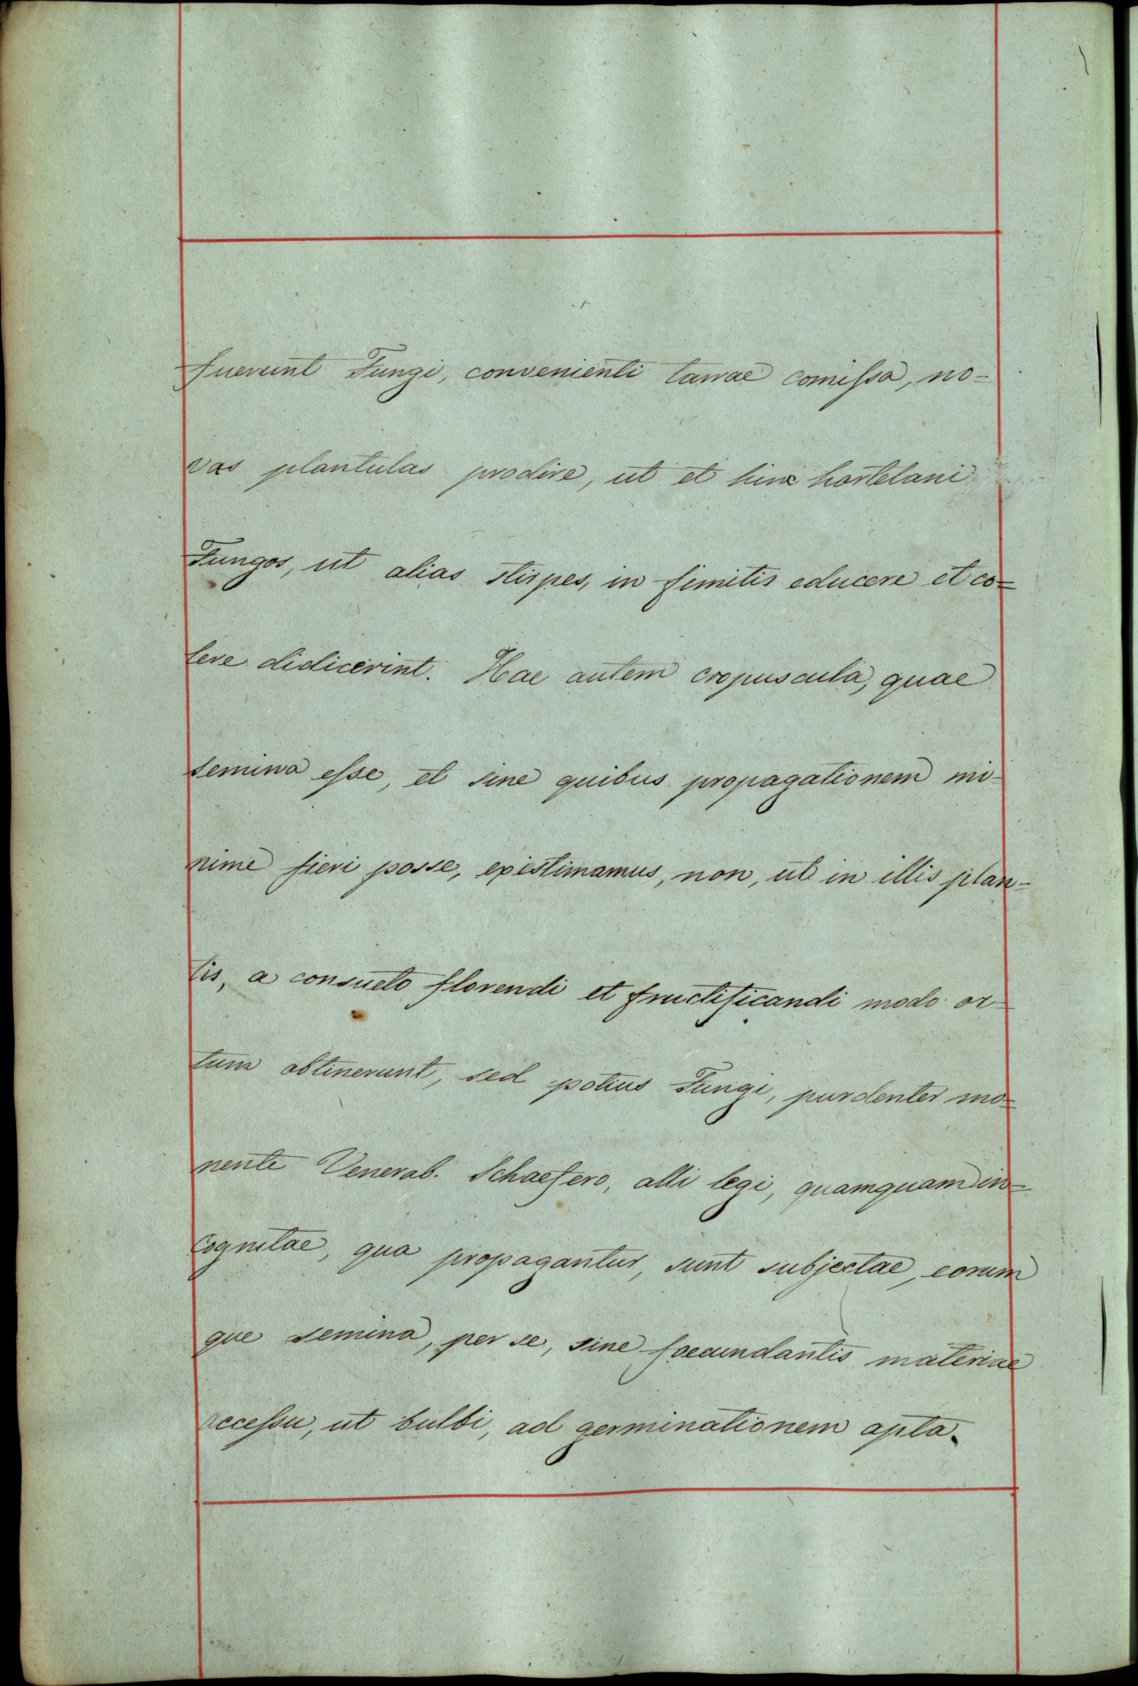 fuerunt Fungi, convenienti tarrae comissa, no=
vas plantulas prodire, ut et hinc hortelani
Fungos, ut alias stirpes, in fimitis educere et co=
lere didicerint. Hae autem cropuscula, quae
semina esse, et sine quibus propagationem mi-
nime fieri posse, existimamus, non, ut in illis plan-
tis, a consueto florendi et fructificandi modo or-
tum obtinerunt, sed potius Fungi, purdenter mo=
nente Venerab. Schaefero, alli legi, quamquam in=
cognitae, qua propagantur, sunt subjectae, eorum
que semina, per se, sine foecundantis materiae
accessu, ut bulbi, ad germinationem apta.